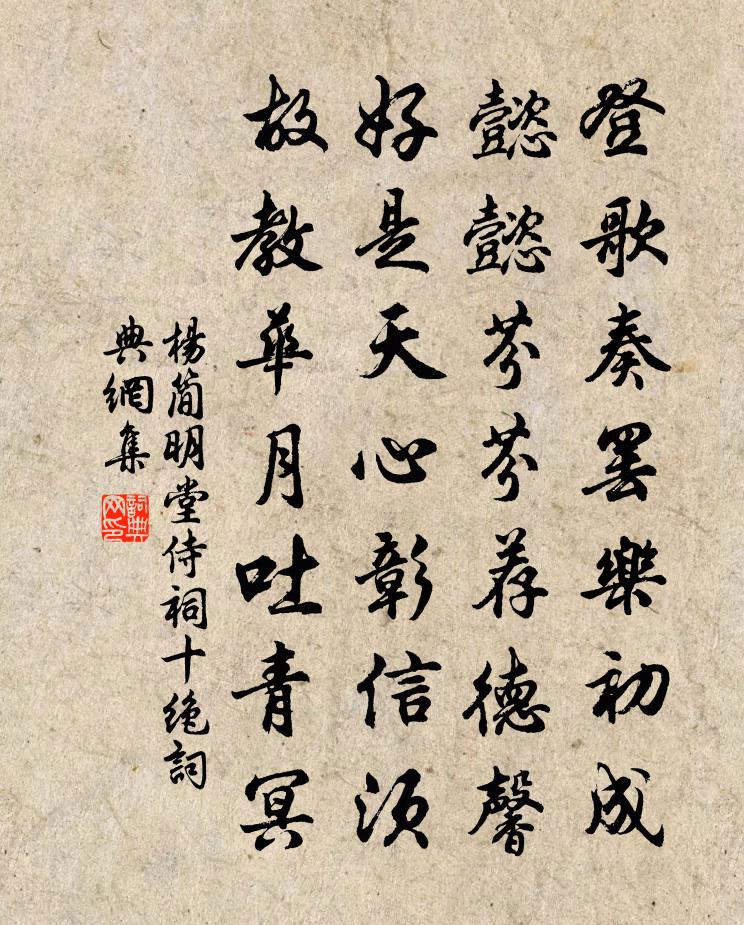 登歌奏罢樂初成
懿懿芬芬荐德馨
好是天心彰信须
故教華月吐青冥
楊简明堂侍祠十绝詞
典網集
詞典網印